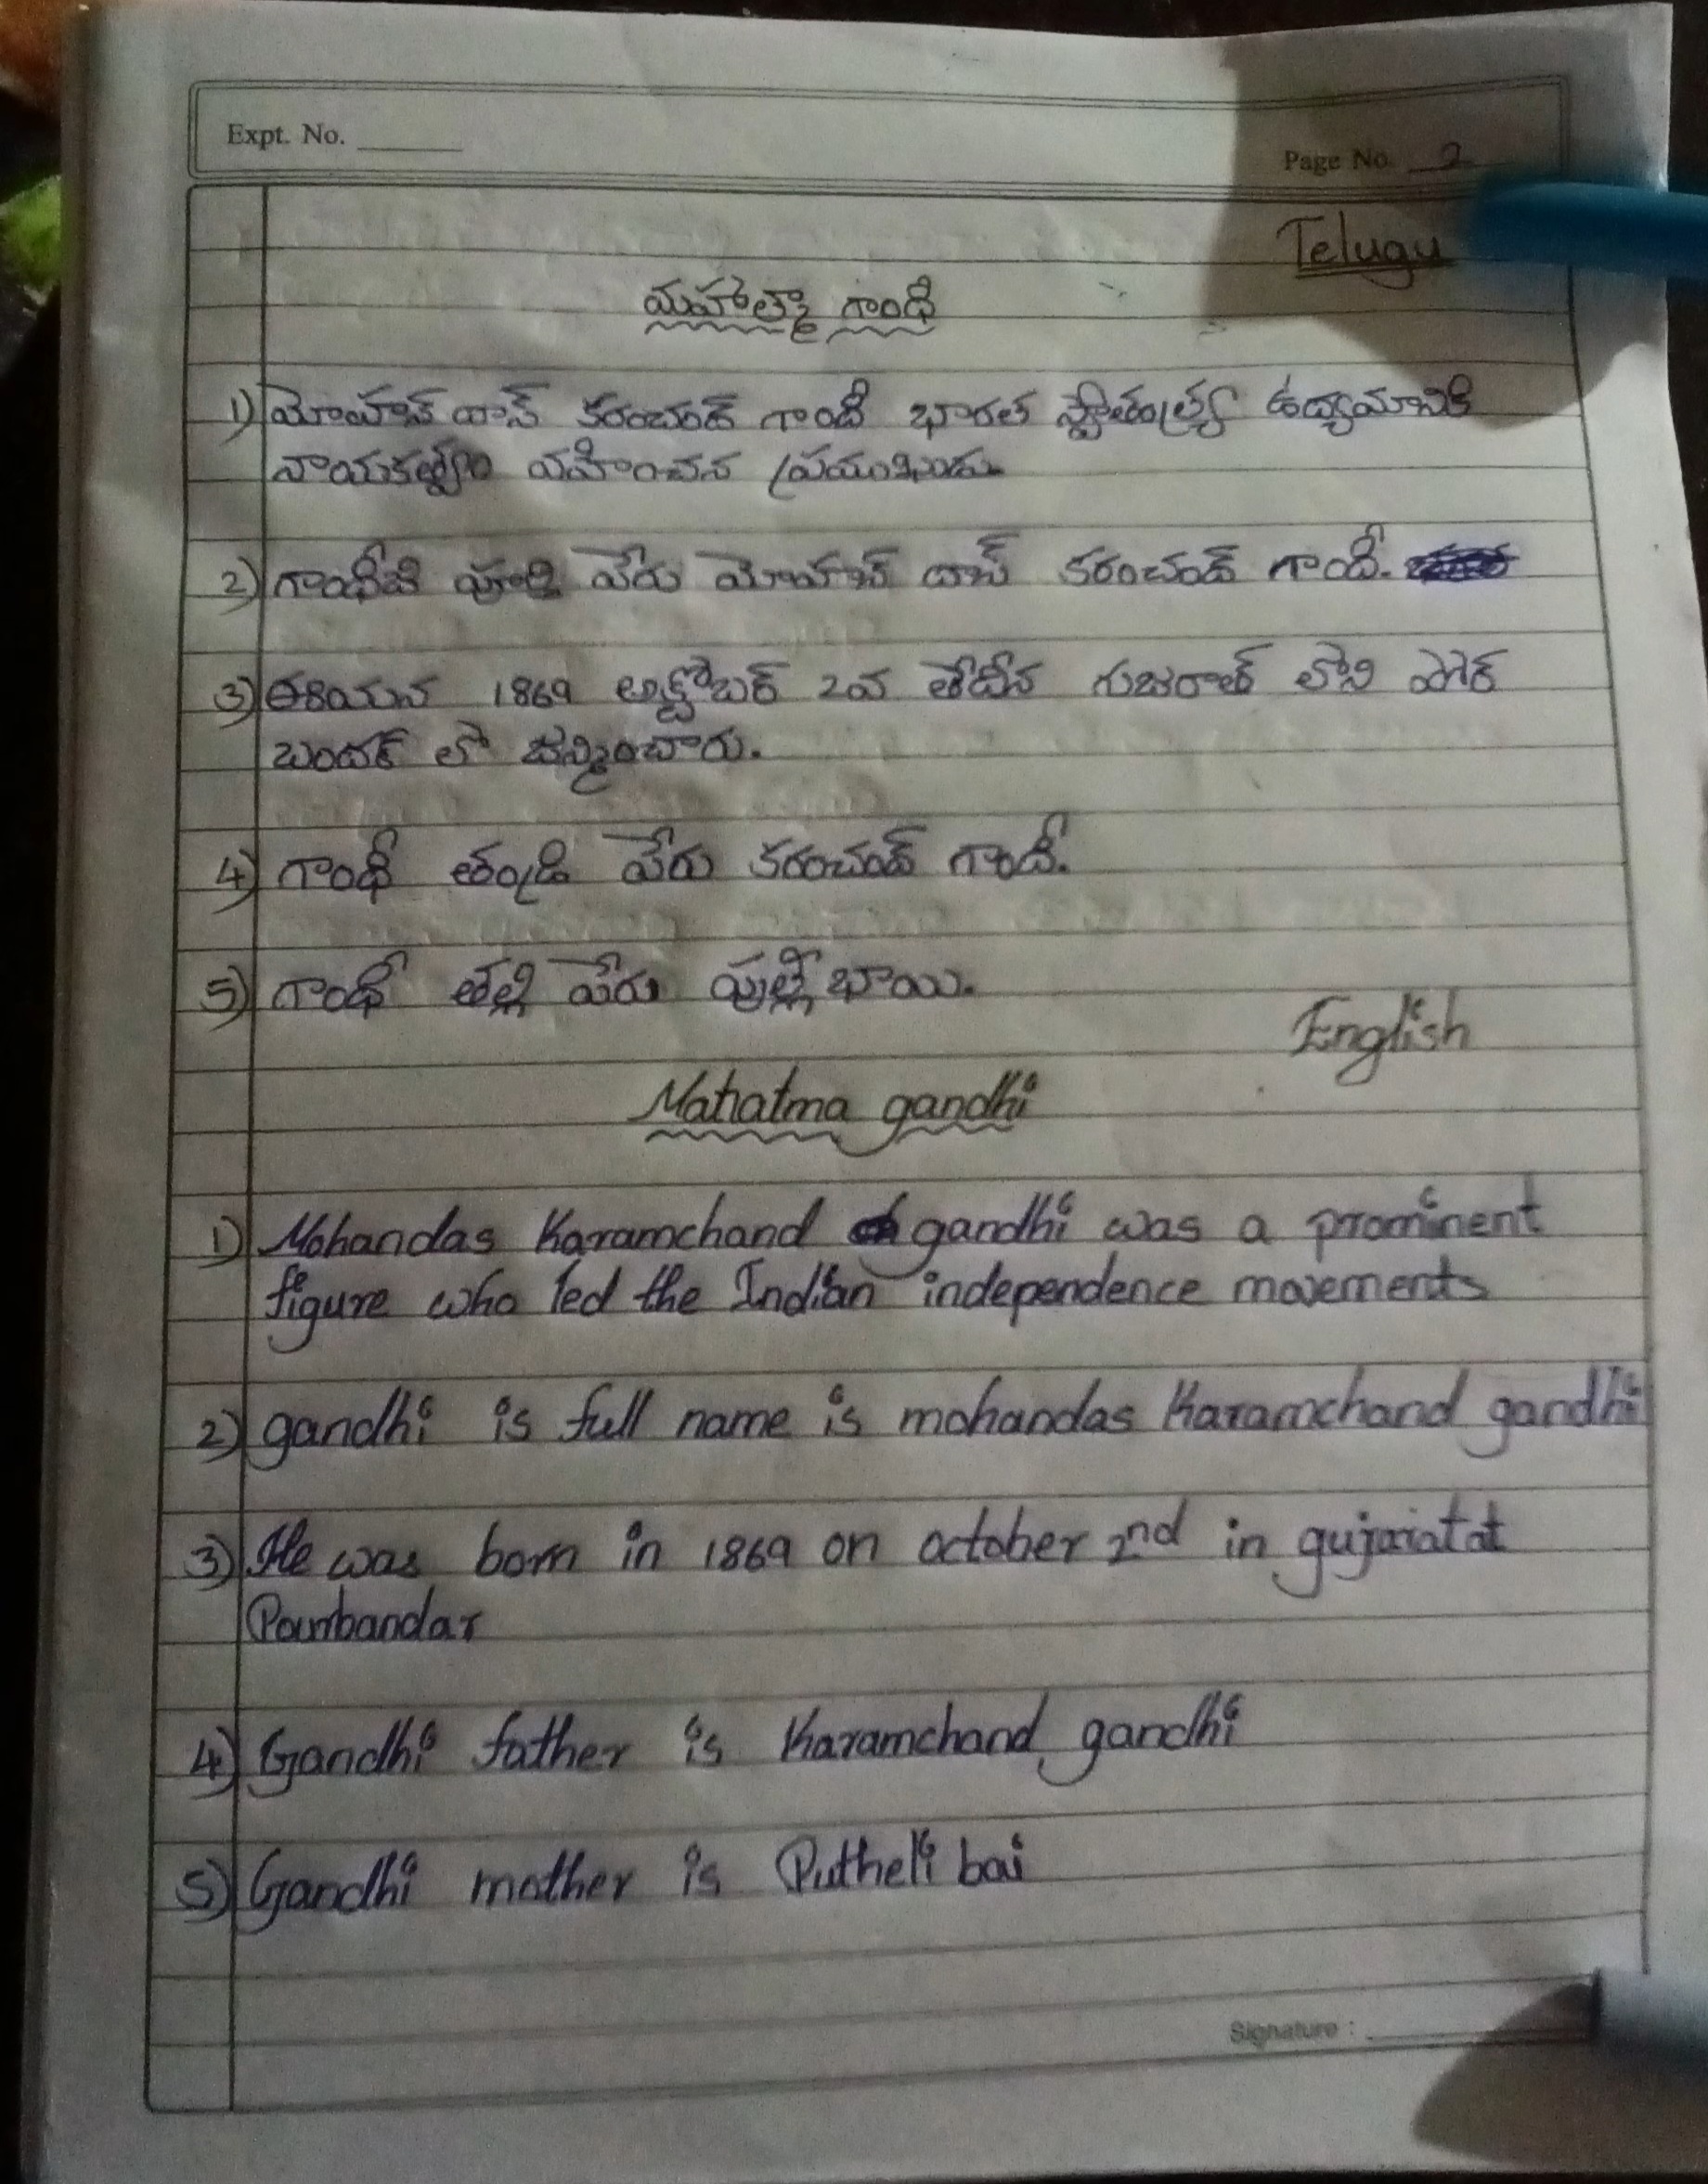 Expt. No.
Page No. 2
Telugu
మహాత్మా గాంధీ
1) మోహన్ దాస్ కరంచంద్ గాంధీ భారత స్వాతంత్ర్య ఉద్యమానికి
నాయకత్వం వహించిన
2) గాంధీజి పూర్తి పేరు మోహన్ దాస్ కరంచంద్ గాంధీ.
3) 1869 అక్టోబర్ 2వ తేదీన గుజరాత్ లోని పోర్
బందర్ లో జన్మించారు.
4) గాంధీ తండ్రి పేరు కరంచంద్ గాంధీ.
5) గాంధీ తల్లి పేరు పుత్లీ భాయి.
English
Mahatma gandhi
1) Mohandas Karamchand gandhi was a prominent
figure who led the Indian independence movements
2) gandhi is full name is mohandas Karamchand gandhi
3) He was born in 1869 on october 2nd in gujariat at
Pourbandar
4) Gandhi father is Karamchand gandhi
5) Gandhi mother is Putheli bai
Signature :